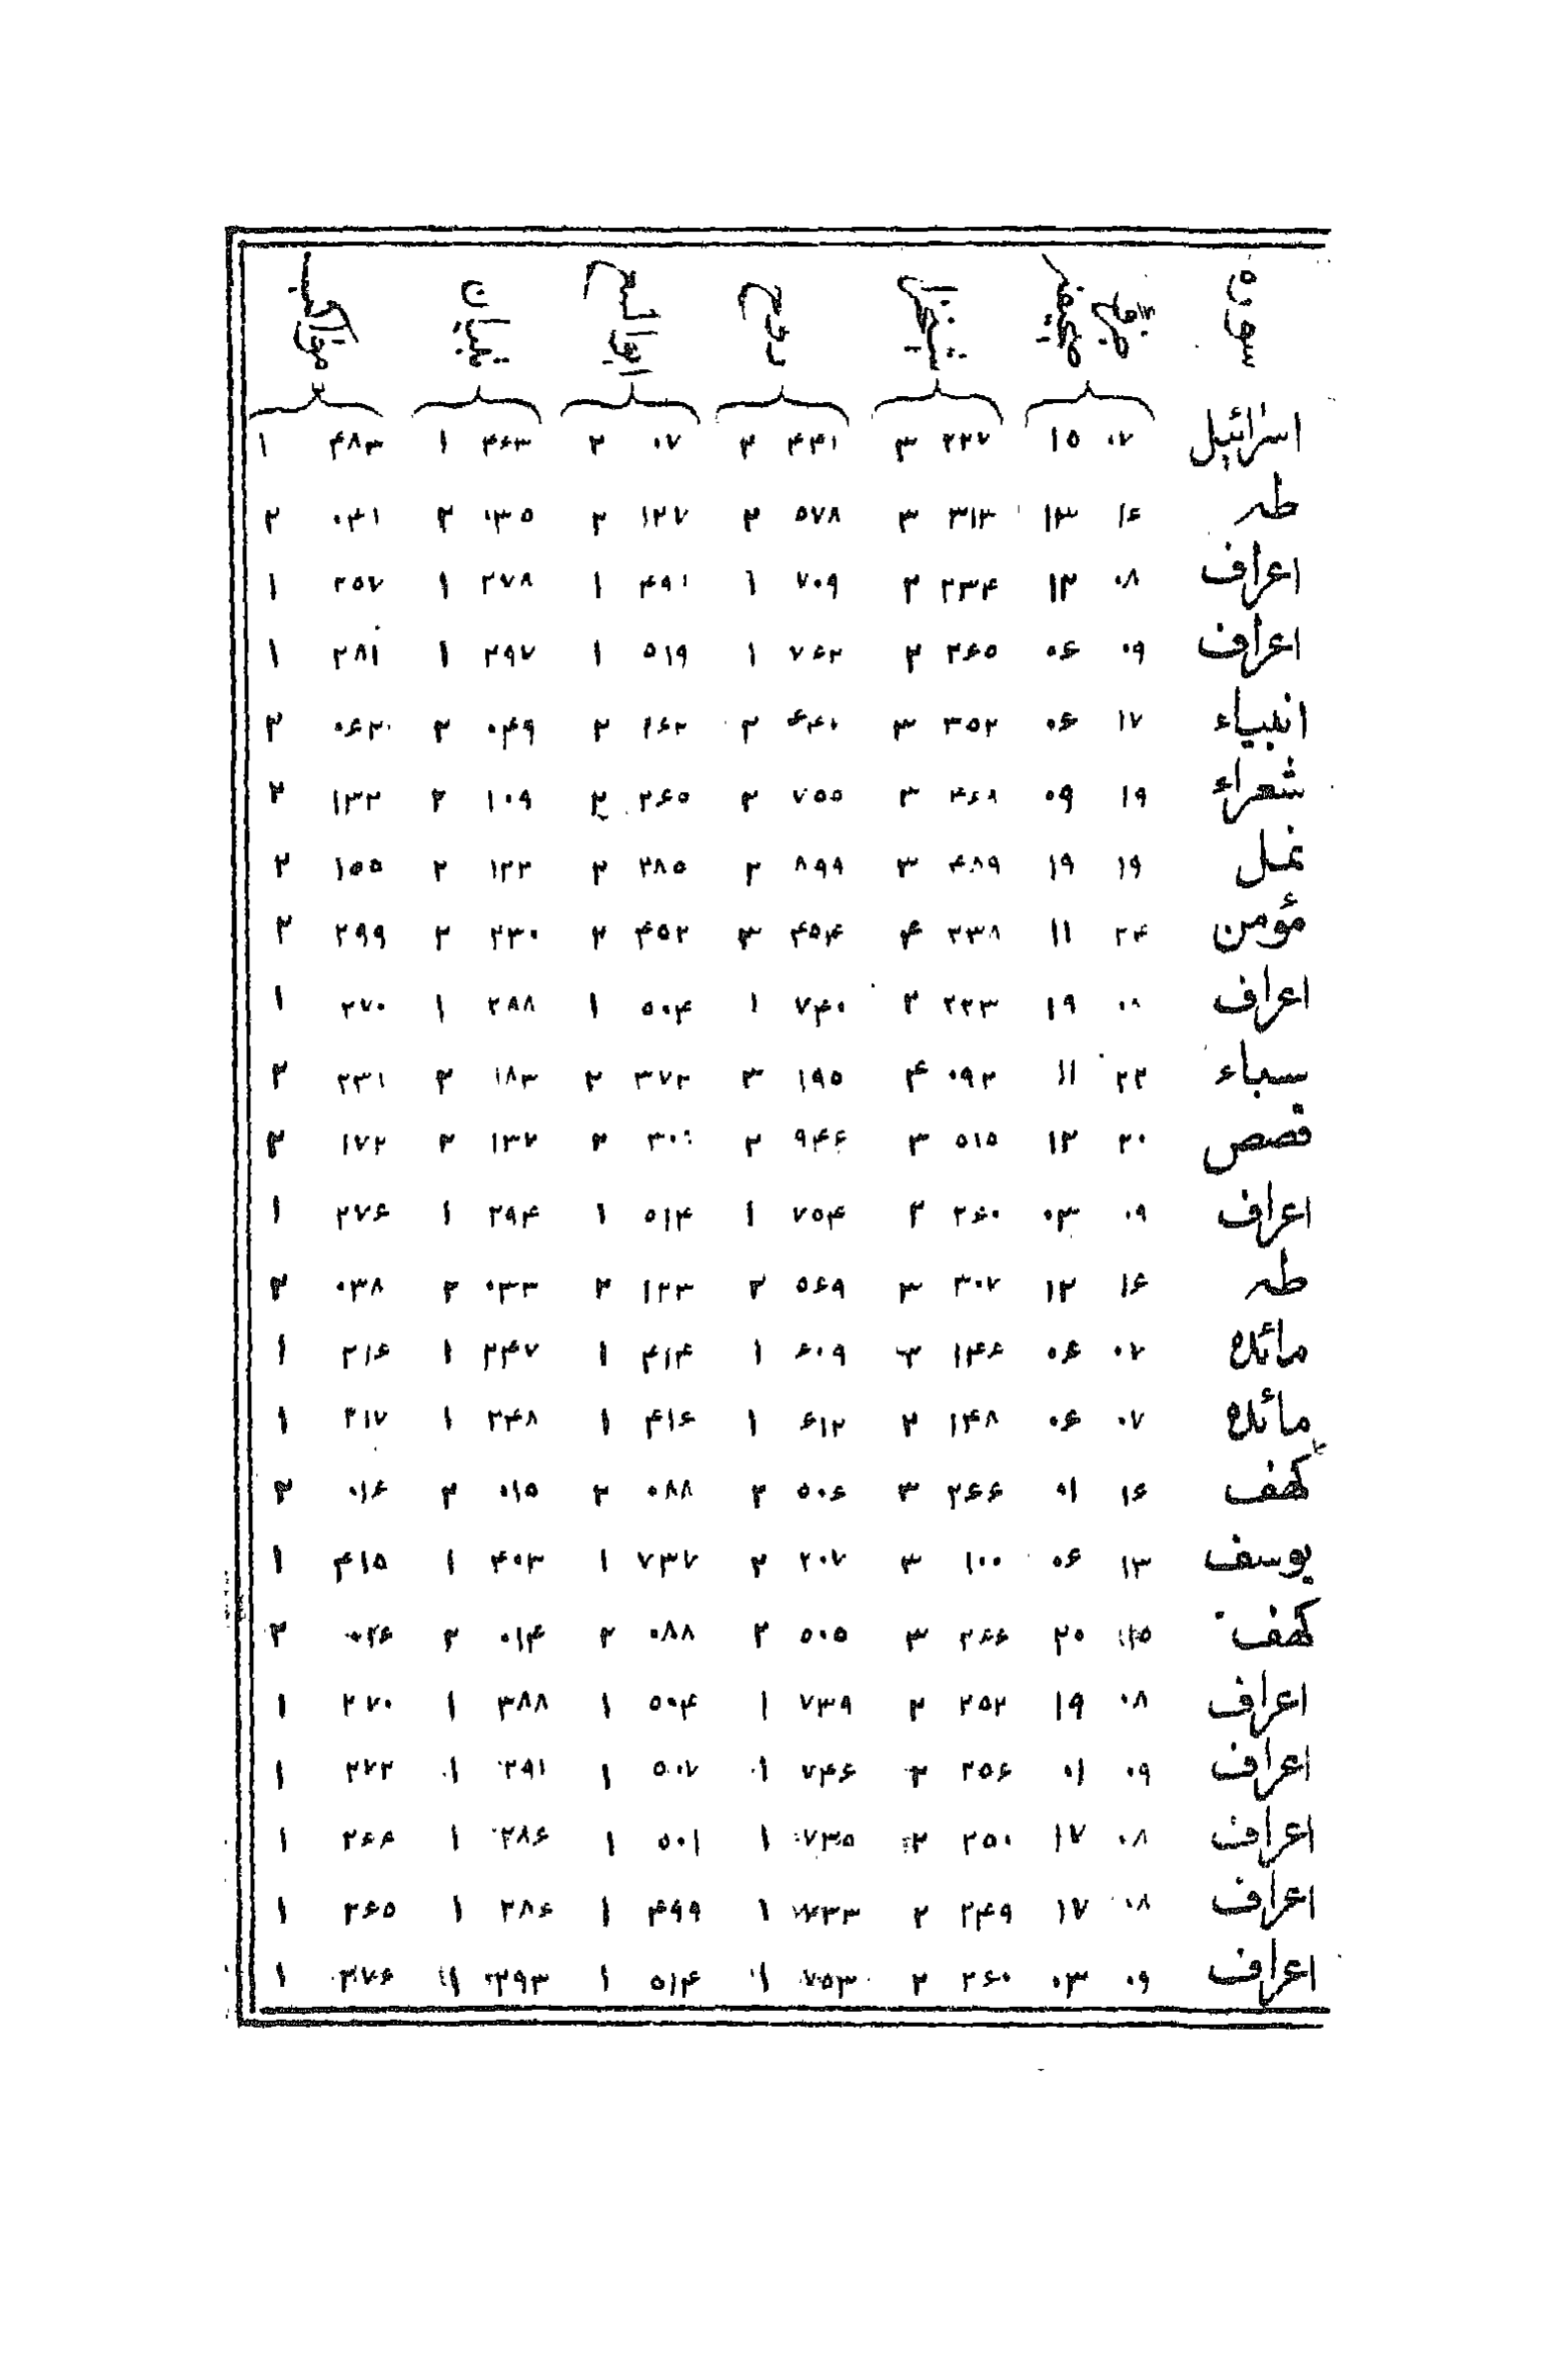 سوره
اسرائیل ۰۷ ۱۵ ۲۲۷ ۳ ۴۴۱ ۲ ۰۷ ۲ ۴۶۳ ۱ ۴۸۳ ۱
طه ۱۶ ۱۳ ۳۱۳ ۳ ۵۷۸ ۲ ۱۲۷ ۲ ۰۳۵ ۲ ۰۴۱ ۲
اعراف ۰۸ ۱۲ ۲۳۴ ۲ ۷۰۹ ۱ ۴۹۱ ۱ ۲۷۸ ۱ ۲۵۷ ۱
اعراف ۰۹ ۰۶ ۲۶۵ ۲ ۷۶۲ ۱ ۵۱۹ ۱ ۲۹۷ ۱ ۲۸۱ ۱
انبیاء ۱۷ ۰۶ ۳۵۲ ۳ ۶۴۰ ۲ ۱۶۲ ۲ ۰۴۹ ۲ ۰۶۲ ۲
شعراء ۱۹ ۰۹ ۴۶۸ ۳ ۷۵۵ ۲ ۲۶۵ ۲ ۱۰۹ ۲ ۱۳۲ ۲
نمل ۱۹ ۱۹ ۴۸۹ ۳ ۸۹۹ ۲ ۲۸۵ ۲ ۱۲۲ ۲ ۱۵۵ ۲
مؤمن ۲۴ ۱۱ ۲۳۸ ۴ ۴۵۴ ۳ ۴۵۲ ۲ ۲۳۰ ۲ ۲۹۹ ۲
اعراف ۰۸ ۱۹ ۲۲۳ ۲ ۷۴۰ ۱ ۵۰۴ ۱ ۲۸۸ ۱ ۲۷۰ ۱
سباء ۲۲ ۱۱ ۰۹۲ ۴ ۱۹۵ ۳ ۳۷۲ ۲ ۱۸۳ ۲ ۲۳۱ ۲
قصص ۲۰ ۱۲ ۵۱۵ ۳ ۹۴۶ ۲ ۲ ۱۳۷ ۲ ۱۷۲ ۲
اعراف ۰۹ ۰۳ ۲۶۰ ۲ ۷۵۴ ۱ ۵۱۴ ۱ ۲۹۴ ۱ ۲۷۶ ۱
طه ۱۶ ۱۲ ۳۰۷ ۳ ۵۶۹ ۲ ۱۲۳ ۲ ۰۳۳ ۲ ۰۳۸ ۲
مائده ۰۷ ۰۶ ۱۴۶ ۲ ۶۰۹ ۱ ۴۱۴ ۱ ۲۴۷ ۱ ۲۱۶ ۱
مائده ۰۷ ۰۶ ۱۴۸ ۲ ۶۱۲ ۱ ۴۱۶ ۱ ۲۴۸ ۱ ۲۱۷ ۱
کهف ۱۶ ۰۱ ۲۶۶ ۳ ۵۰۶ ۲ ۰۸۸ ۲ ۰۱۵ ۲ ۰۱۶ ۲
یوسف ۱۳ ۰۶ ۱۰۰ ۳ ۲۰۷ ۲ ۷۳۷ ۱ ۴۰۳ ۱ ۴۱۵ ۱
کهف ۱۵ ۲۰ ۲۶۶ ۳ ۵۰۵ ۲ ۰۸۸ ۲ ۰۱۴ ۲ ۰۲۶ ۲
اعراف ۰۸ ۱۹ ۲۵۲ ۲ ۷۳۹ ۱ ۵۰۴ ۱ ۳۸۸ ۱ ۲۷۰ ۱
اعراف ۰۹ ۰۱ ۲۵۶ ۲ ۷۴۶ ۱ ۵۰۷ ۱ ۲۹۱ ۱ ۲۷۲ ۱
اعراف ۰۸ ۱۷ ۲۵۰ ۲ ۷۳۵ ۱ ۵۰۱ ۱ ۲۸۶ ۱ ۲۶۶ ۱
اعراف ۰۸ ۱۷ ۲۴۹ ۲ ۷۳۳ ۱ ۴۹۹ ۱ ۲۸۶ ۱ ۲۶۵ ۱
اعراف ۰۹ ۰۳ ۲۶۰ ۲ ۷۵۳ ۱ ۵۱۴ ۱ ۲۹۳ ۱ ۲۷۶ ۱